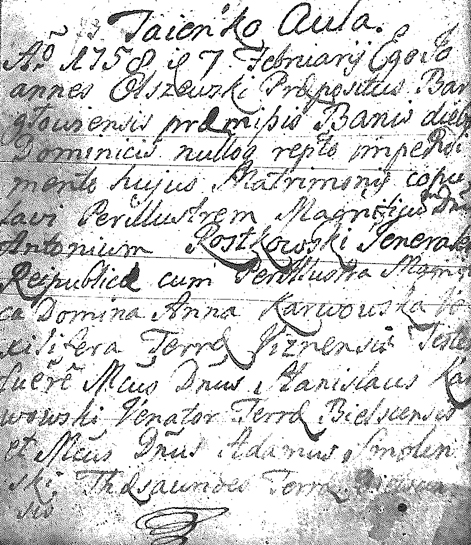 Taieńko Aula.
Aō 1758 d 7 Februarij Ego Jo
annes Olszewski Præpositus Bar
głoviensis præmissis Banis diebus
Dominicis nulloq repto impedi
mento hujus Matrimonij copu
lavi Perillustrem Magnificum Dnum
Antonium Rostkowski Generalem
Reipublicæ cum Perillustra Magnifi
ca Domina Anna Karwowska Ve
xilifera Terræ Viznensis Testes
fuere Mcus Dnus Stanislaus Kar
wowski Venator Terræ Bielscensis
et Mcus Dnus Adamus Smolen
ski Thesaurides Terræ
sis